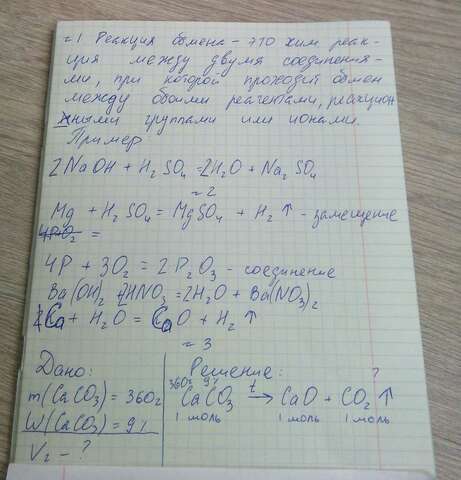 =1 Реакция обмена - это хим. реак-
ция между двумя соединения-
ми, при которой проходит обмен
между обоими реагентами, реакцион
ными группами или ионами.
Пример
2NaOH + H₂SO₄ = 2H₂O + Na₂SO₄
=2
Mg + H₂SO₄ = MgSO₄ + H₂↑ - замещение
4P+O₂ =
4P + 3O₂ = 2P₂O₃ - соединение
Ba(OH)₂ + 2HNO₃ = 2H₂O + Ba(NO₃)₂
Ca + H₂O = CaO + H₂↑
=3
Дано:
m(CaCO₃) = 360г
W(CaCO₃) = 9%
V₂ - ?
Решение: ?
360г 9%
CaCO₃ t→ CaO + CO₂↑
1 моль 1 моль 1 моль